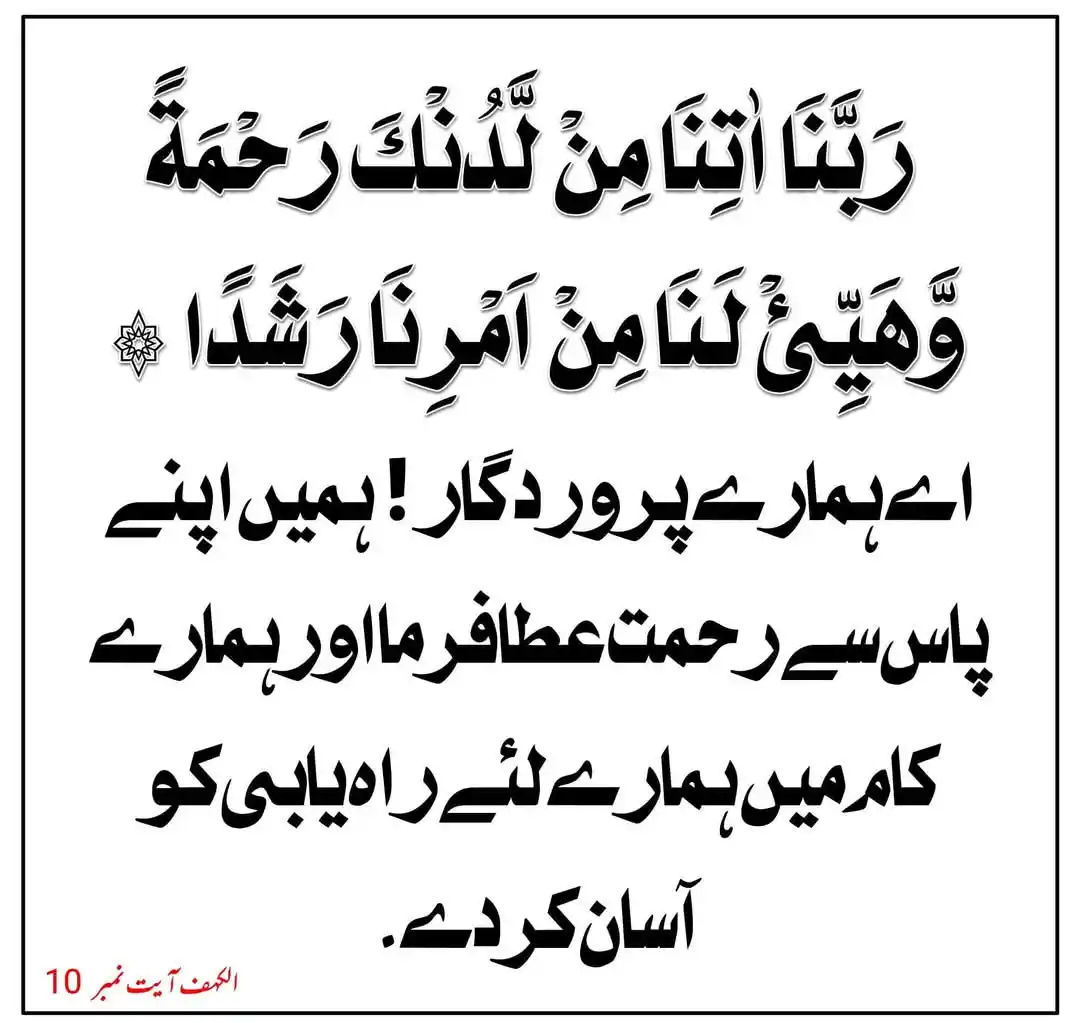 رَبَّنَا اٰتِنَا مِنْ لَّدُنْكَ رَحْمَةً
وَّهَيِّئْ لَنَا مِنْ اَمْرِنَا رَشَدًا
اے ہمارے پروردگار! ہمیں اپنے
پاس سے رحمت عطا فرما اور ہمارے
کام میں ہمارے لئے راہ یابی کو
آسان کر دے.
الکہف آیت نمبر 10